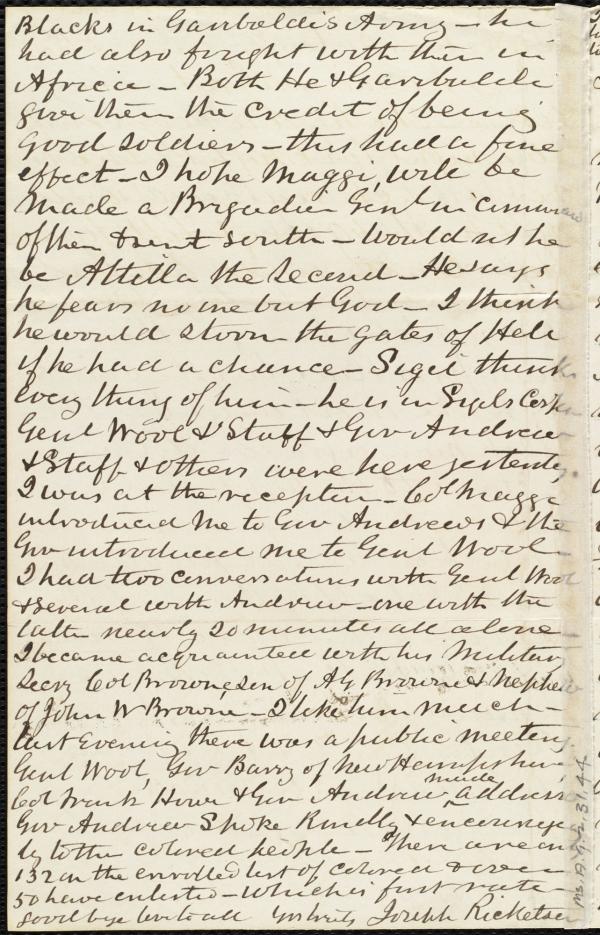 Blacks in Garibaldis Army – he
had also fought with them in
Africa – Both He & Garibaldi
give them the credit of being
good soldiers – this had a fine
effect – I hope Maggi, will be
made a Brigadier Genl in command
of them & sent south – Would not he
be Attilla the Second – He says
he fears no one but God – I think
he would storm the gates of Hell
if he had a chance – Sigel thinks
Every thing of him – he is in Sigels Corps
Genl Wool & Staff & Gov Andrew
& Staff & others were here yesterday.
I was at the reception – Col Maggi
introduced me to Gov Andrews & the
Gov introduced me to Genl Wool –
I had two conversations with Genl Wool
& several with Andrew – one with the
latter nearly 20 minutes all alone –
I became acquainted with his Military
Secry Col Browne, son of A G Browne & Nephew
of John W Browne – I like him much –
last Evening there was a public meeting.
Genl Wool, Gov Barry of New Hampshire,
Col Frank Howe & Gov Andrew made address
Gov Andrew Spoke Kindly & encourage
ly to the colored people – There are on
132 on the enrolled list of colored & over
50 have enlisted – which is first rate –
good bye love to all Joseph Ricketson
Ms.A.9.2.31.44